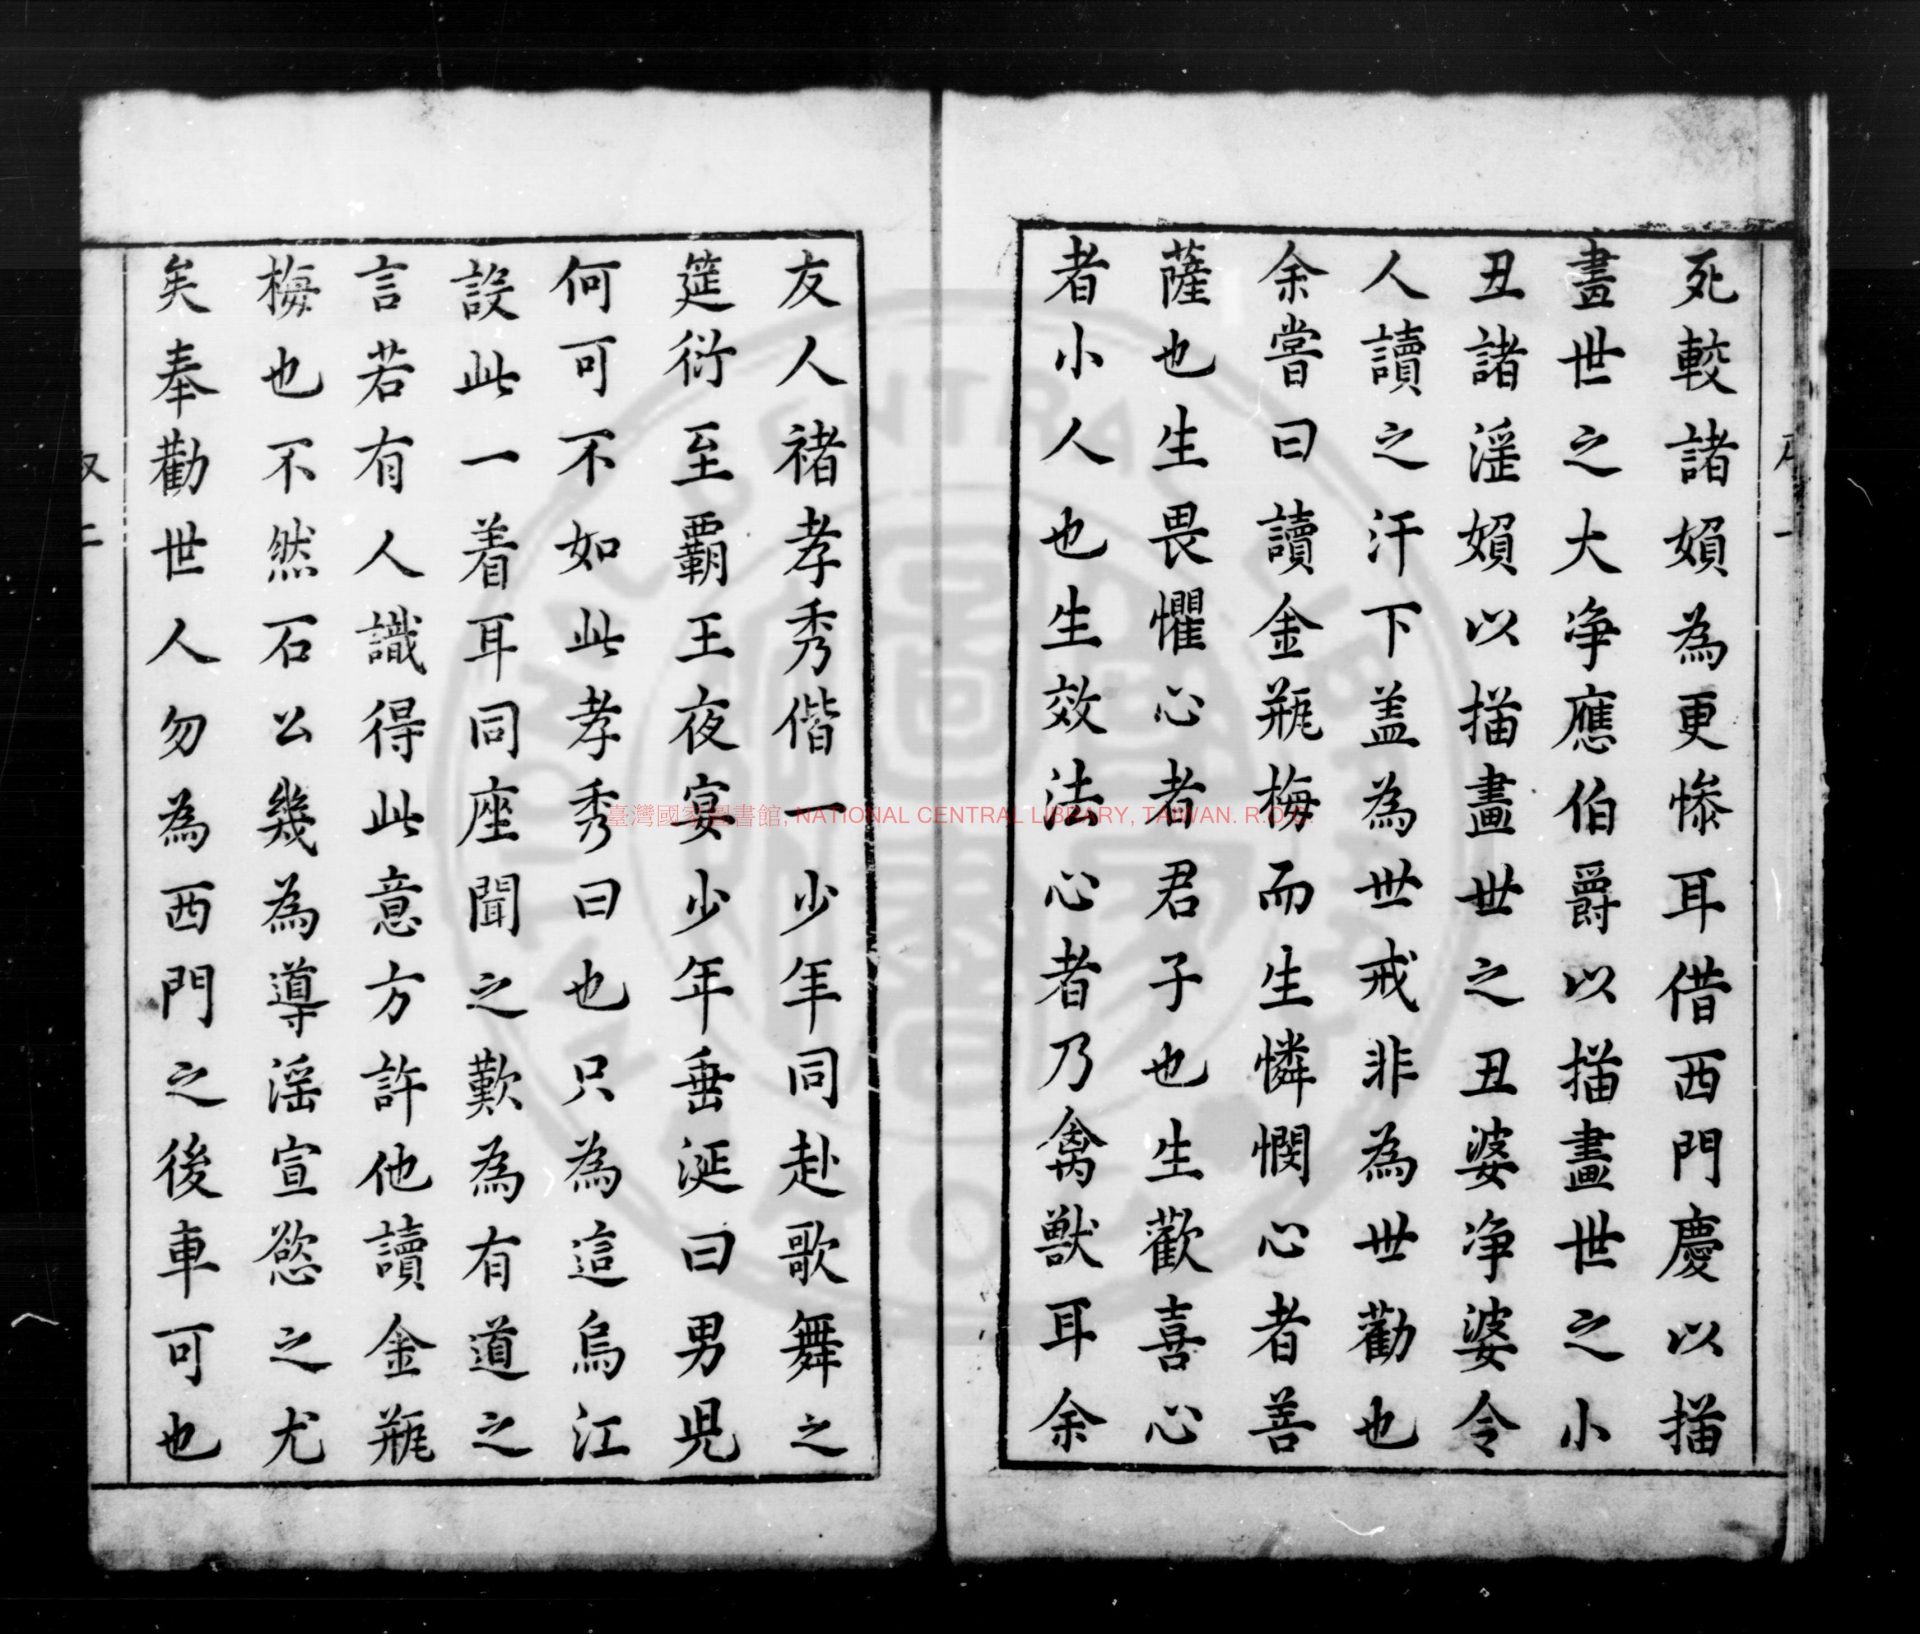 死較諸嬪為更慘耳借西門慶以描
畫世之大净應伯爵以描畫世之小
丑諸滛嬪以描畫世之丑婆净婆令
人讀之汗下盖為世戒非為世勸也
余嘗曰讀金瓶梅而生憐憫心者菩
薩也生畏懼心者君子也生歡喜心
者小人也生效法心者乃禽獸耳余
友人禇孝秀偕一少年同赴歌舞之
筵衍至覇王夜宴少年垂涎曰男児
何可不如此孝秀曰也只為這烏江
設此一着耳同座聞之歎為有道之
言若有人識得此意方許他讀金瓶
梅也不然石公幾為導滛宣慾之尤
矣奉勸世人勿為西門之後車可也
臺灣國家圖書館, NATIONAL CENTRAL LIBRARY, TAIWAN. R.O.C.
NATIONAL CENTRAL LIBRARY